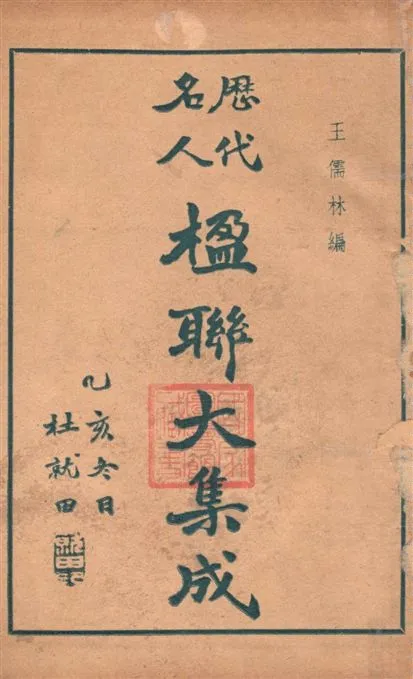 王儒林編
歷代
名人
楹聯大集成
乙亥冬日
杜就田